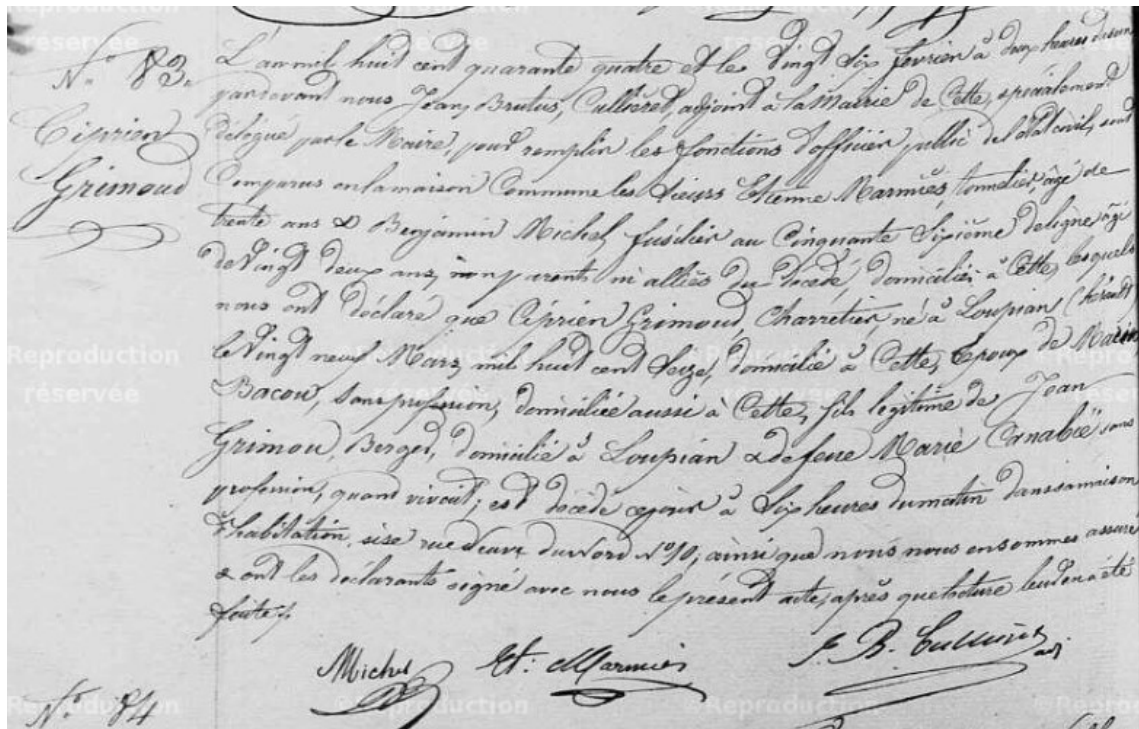 N.° 83.
Ciprien
Grimoud
L'an mil huit cent quarante quatre et le vingt six février à deux heures du soir
pardevant nous Jean, Brutus, Cullieret, adjoint à la Mairie de Cette, spécialement
délégué par le Maire, pour remplir les fonctions d'officier public de l'état civil, sont
Comparus en la maison Commune les Sieurs Etienne Marmiès, tonnelier, âgé de
trente ans & Benjamin Michel, fusilier au Cinquante Sixième de ligne âgé
de vingt deux ans, non parents ni alliés du décédé, domiciliés à Cette, lesquels
nous ont déclaré que Ciprien Grimoud, Charretier, né à Loupian (hérault
le vingt neuf Mars mil huit cent Seize, domicilié à Cette, Epoux de Marie
Bacou, sans profession, domiciliée aussi à Cette, fils légitime de Jean
Grimou, Berger, domicilié à Loupian & de feue Marie Arnabie sans
profession, quand vivait; est décédé ce jour à Six heures du matin dans sa maison
d'habitation, sise rue Neuve du Nord N° 10; ainsi que nous nous en sommes assuré
& ont les déclarants signé avec nous le présent acte, après que lecture leur en a été
faite.
Michel Et: Marmiès J. B. Cullieret adj.
N.° 84
Reproduction
réservée